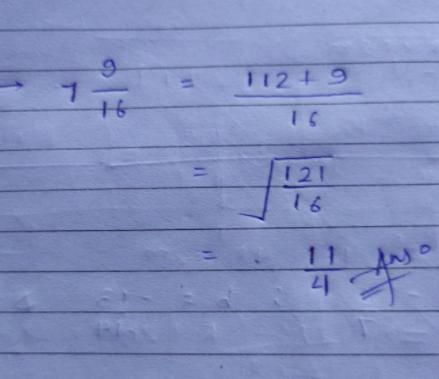 → 7 9/16 = 112 + 9/16
= √121/16
= 11/4 Ans